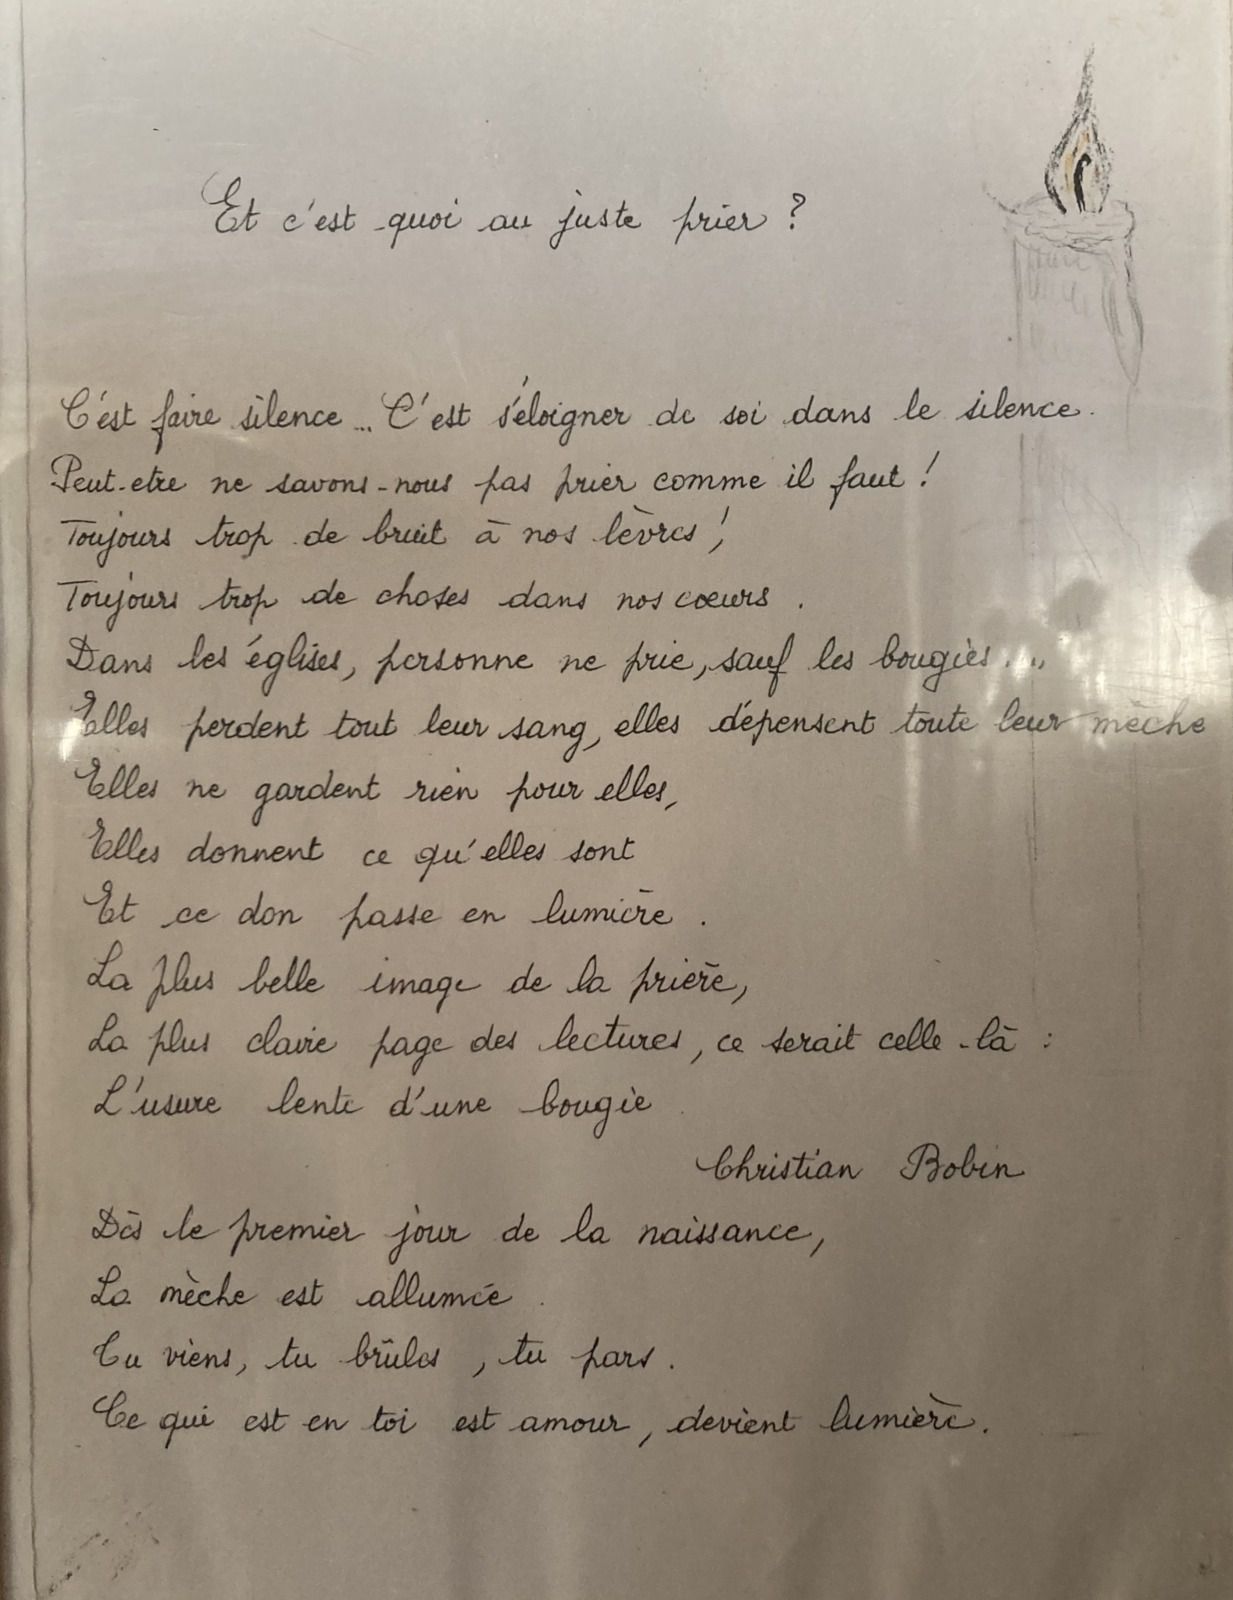 Et c'est quoi au juste prier ?
C'est faire silence... C'est s'éloigner de soi dans le silence.
Peut-etre ne savons-nous pas prier comme il faut !
Toujours trop de bruit à nos lèvres !
Toujours trop de choses dans nos cœurs .
Dans les églises, personne ne prie, sauf les bougies...
Elles perdent tout leur sang, elles dépensent toute leur mèche
Elles ne gardent rien pour elles,
Elles donnent ce qu'elles sont
Et ce don passe en lumière .
La plus belle image de la prière,
La plus claire page des lectures, ce serait celle-là :
L'usure lente d'une bougie
Christian Bobin
Dès le premier jour de la naissance,
La mèche est allumée .
Tu viens, tu brûles , tu pars .
Ce qui est en toi est amour, devient lumière.